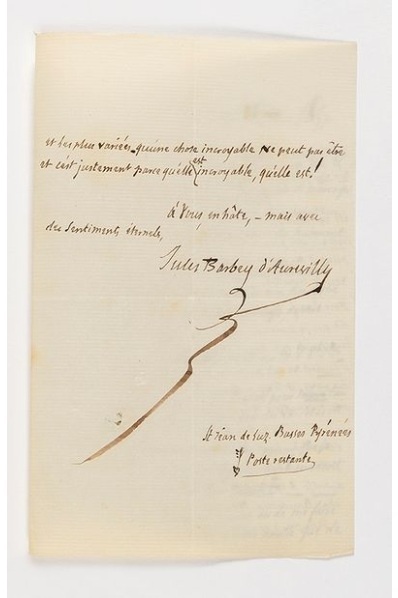 et les plus variées qu'une chose incroyable ne peut pas être
et c'est justement parce qu'elle est incroyable, qu'elle est!
à Vous, en hâte, – mais avec
des Sentiments éternels,
Jules Barbey d'Aurevilly
St Jean de Luz Basses Pyrénées
Poste restante